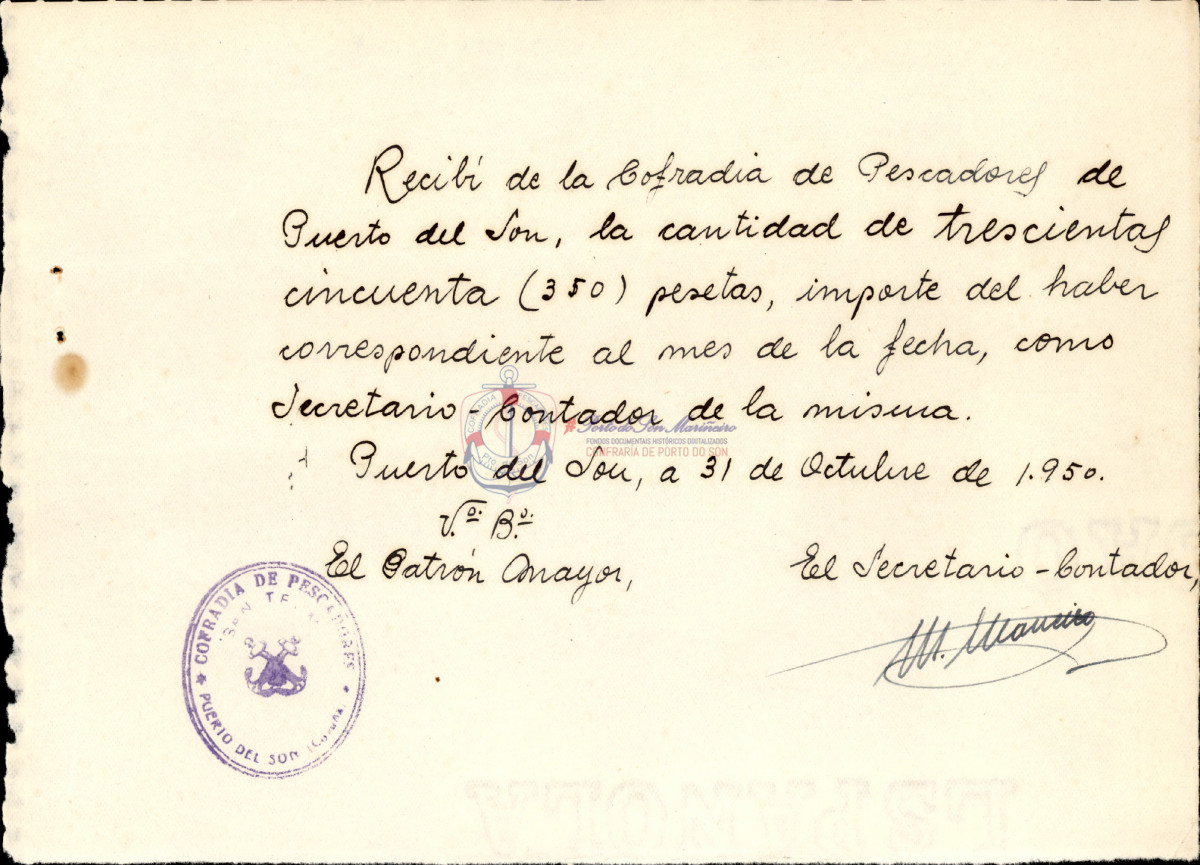 Recibí de la Cofradia de Pescadores de
Puerto del Son, la cantidad de trescientas
cincuenta (350) pesetas, importe del haber
correspondiente al mes de la fecha, como
Secretario-Contador de la misma.
#Porto do Son Mariñeiro
FONDOS DOCUMENTAIS HISTÓRICOS DIXITALIZADOS
CONFRARÍA DE PORTO DO SON
Puerto del Son, a 31 de Octubre de 1.950.
V.º B.º
El Patrón Mayor,
El Secretario-Contador,
M. Maneiro
COFRADIA DE PESCADORES
PUERTO DEL SON